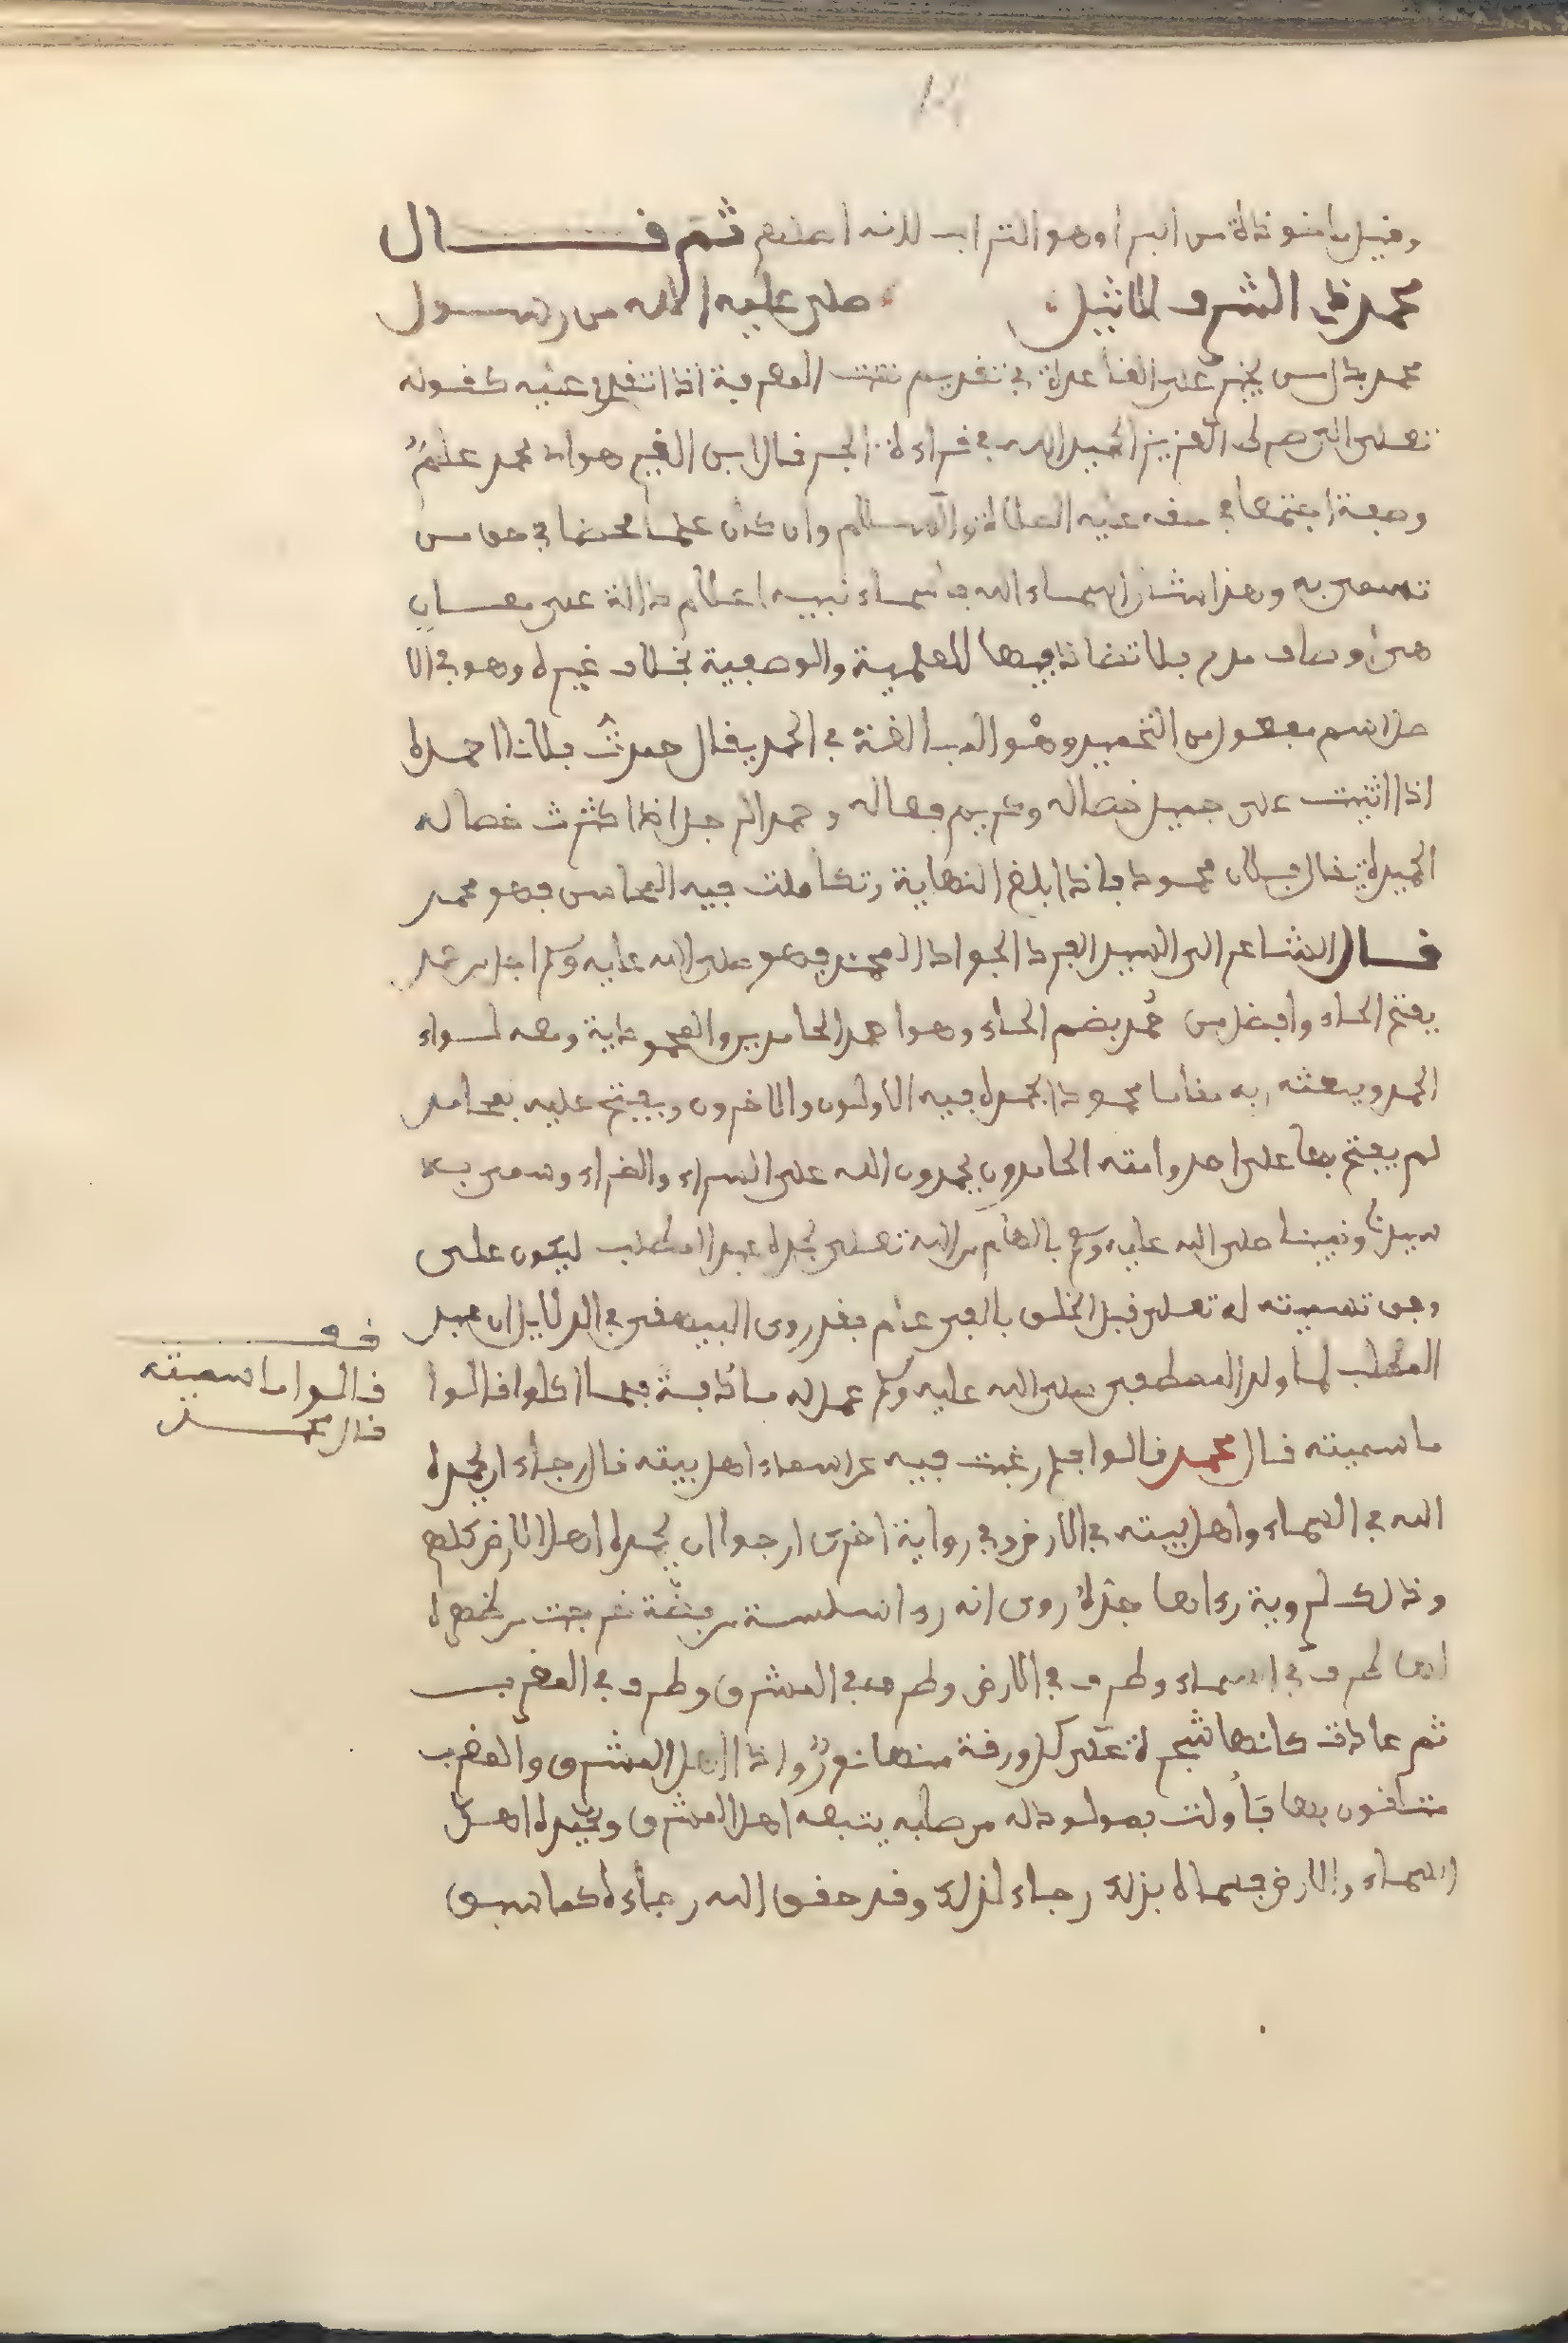 وقيل ماخوذة من البرا وهو التراب لانه اعلم ثم قال
محمد ذي الشرف الاثيل صلى عليه الله من رسول
محمد بدل من خير على القاعدة في تقديم نعت المعرفة اذا تقدم عليه كقوله
تعلى الى صراط العزيز الحميد الله في قراءة الجر قال ابن القيم هو اي محمد علم
وصفة اجتمعا في حقه عليه الصلاة والسلام وان كان علما محضا في حق من
تسمى به وهذا شان اسماء الله واسماء نبيه اعلام دالة على معان
هي اوصاف مدح فلا تضاد فيها للعلمية والوصفية بخلاف غيره وهو في الا
صل اسم مفعول من التحميد وهو المبالغة في الحمد يقال حمدت فلانا احمده
اذا اثنيت على جميل خصاله وكريم فعاله وحمد الرجل اذا كثرت خصاله
الحميدة يقال فلان محمود فاذا ابلغ النهاية وتكاملت فيه المحامس فهو محمد
قال الشاعر الى السيد الفرد الجواد المحمد فهو صلى الله عليه وسلم اجل من حمد
بفتح الحاء وافضل من حمد بضم الحاء وهو احمد الحامدين والمحمودية ومعه لواء
الحمد ويبعثه ربه مقاما محمودا يحمده فيه الاولون والاخرون ويفتح عليه بمحامد
لم يفتح بها على احد وامته الحامدون يحمدون الله على السراء والضراء وسمى به
سيدنا ونبينا صلى الله عليه وسلم بالهام من الله تعلى لجده عبد المطلب ليكون على
وفق تسميته له تعلى قبل الخلق بالفي عام فقد روى البيهقي في الدلايل ان عبد
المطلب لما ولد المصطفى صلى الله عليه وسلم عمل له مأدبة فلما اكلوا قالوا
ما سميته قال محمد قالوا فلم رغبت فيه عن اسماء اهل بيته قال رجاء ان يحمده
الله في السماء واهل بيته في الارض وفي رواية اخرى ارجوا ان يحمده اهل الارض كلهم
وذلك لروية رءاها جده روى انه رءا سلسلة من فضة خرجت من ظهره
لها طرف في السماء وطرف في الارض وطرف في المشرق وطرف في المغرب
ثم عادت كانها شجرة على كل ورقة منها نور واذا اهل المشرق والمغرب
متعلقون بها فأولت بمولود له من صلبه يتبعه اهل المشرق ويحمده اهل
السماء والارض فسماه بذلك رجاء لذلك وقد حقق الله رجاءه كما سبق
قف
قالوا ما سميته
قال محمد